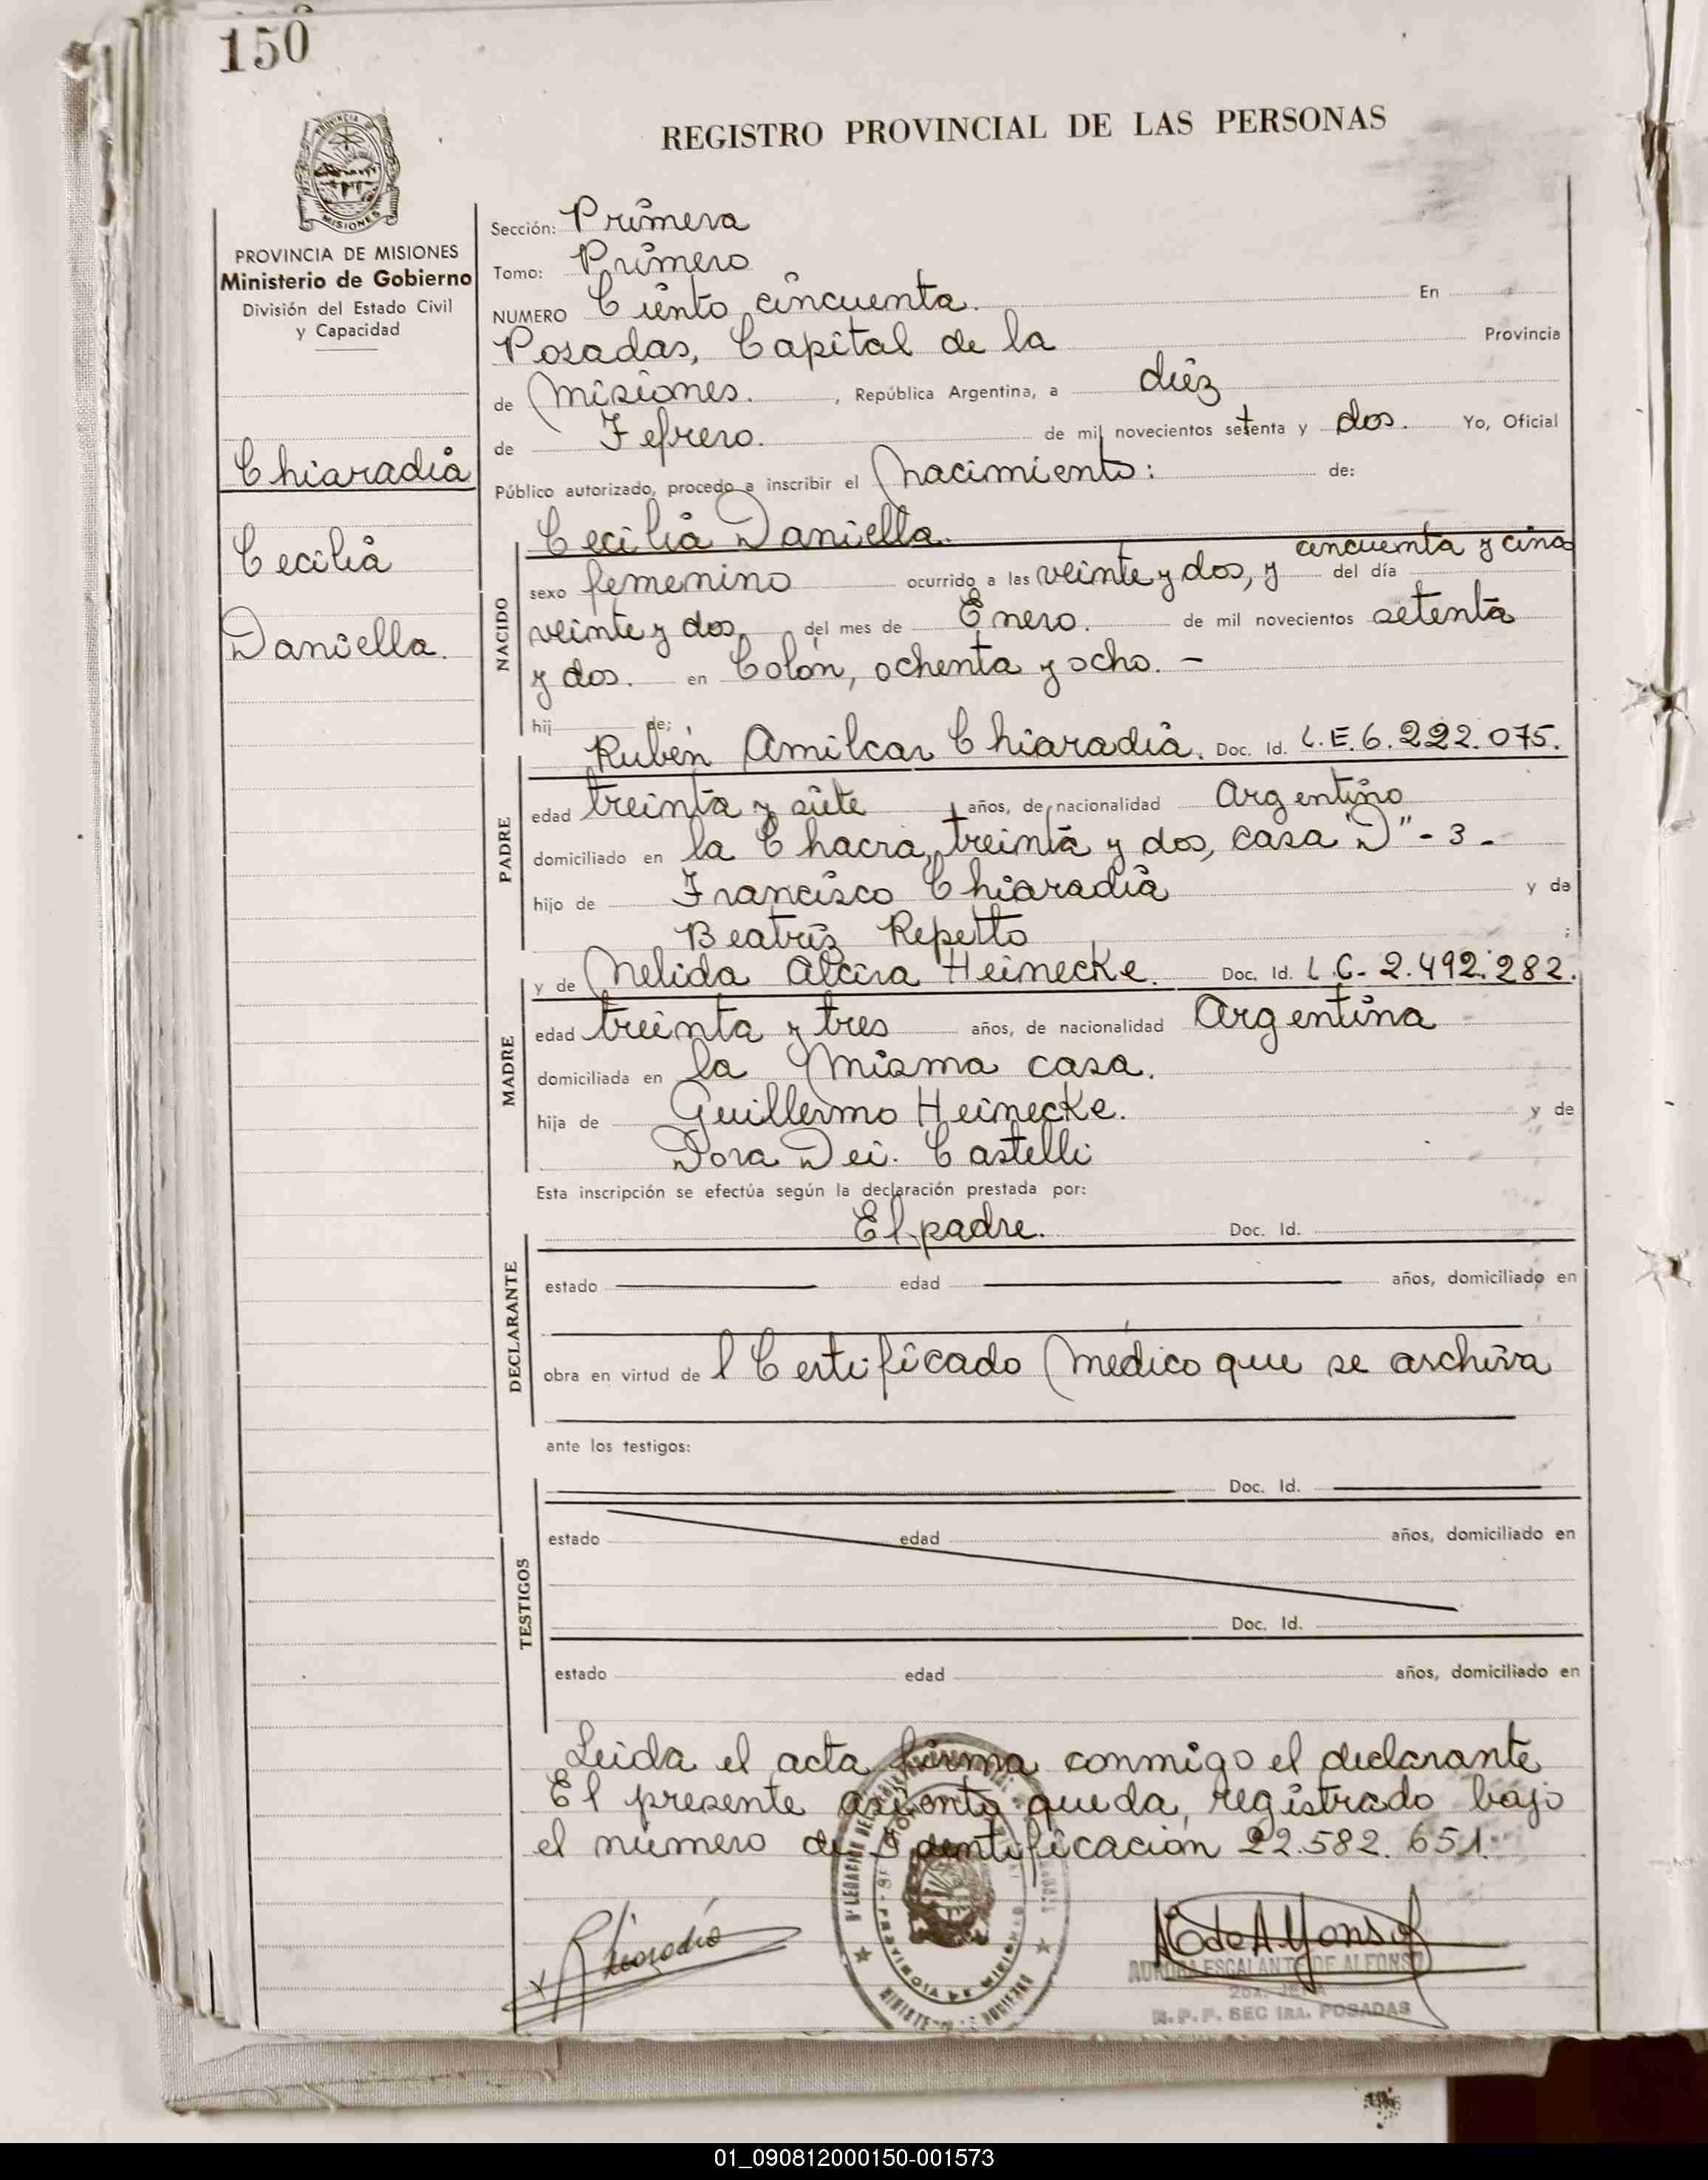 150
PROVINCIA DE
MISIONES
REGISTRO PROVINCIAL DE LAS PERSONAS
PROVINCIA DE MISIONES
Ministerio de Gobierno
División del Estado Civil
y Capacidad
Chiaradia
Cecilia
Daniella.
Sección: Primera
Tomo: Primero
NUMERO Ciento cincuenta. En
Posadas, Capital de la Provincia
de Misiones. , República Argentina, a diez
de Febrero. de mil novecientos setenta y dos. Yo, Oficial
Público autorizado, procedo a inscribir el Nacimiento: de:
Cecilia Daniella.
NACIDO
cincuenta y cinco
sexo femenino ocurrido a las veinte y dos, y del día
veinte y dos, del mes de Enero. de mil novecientos setenta
y dos. en Colón, ochenta y ocho. -
hij de:
Rubén Amilcar Chiaradia. Doc. Id. L.E. 6.222.075.
PADRE
edad treinta y siete años, de nacionalidad Argentino
domiciliado en la Chacra, treinta y dos, casa "D" - 3 -
hijo de Francisco Chiaradia y de
Beatriz Repetto ;
y de Nelida Alcira Heinecke. Doc. Id. L.C- 2.492.282.
MADRE
edad treinta y tres años, de nacionalidad Argentina
domiciliada en la Misma casa.
hija de Guillermo Heinecke. y de
Dora Dei. Castelli
Esta inscripción se efectúa según la declaración prestada por:
El padre. Doc. Id.
DECLARANTE
estado edad años, domiciliado en
obra en virtud de l Certificado Médico que se archiva
ante los testigos:
Doc. Id.
TESTIGOS
estado edad años, domiciliado en
Doc. Id.
estado edad años, domiciliado en
Leida el acta firma conmigo el declarante
El presente asiento queda, registrado bajo
el número de Identificación 22.582.651.
Chiaradia
A E de Alfonso
AURORA ESCALANTE DE ALFONSO
2da. JEFA
R.P.P. SEC 1RA. POSADAS
01_090812000150-001573